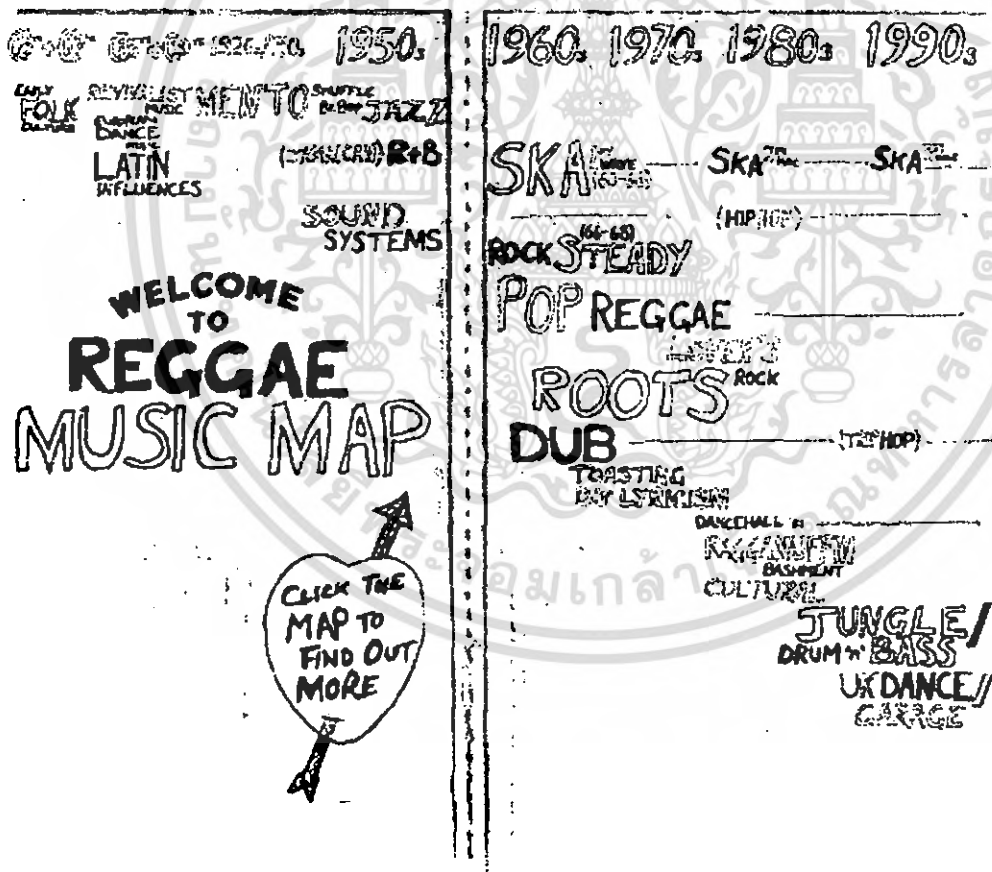 1950s
EARLY FOLK CULTURE
REVIVALIST MUSIC MENTO SHUFFLE BE BOP JAZZ
EUROPEAN DANCE MUSIC
LATIN INFLUENCES
R+B
SOUND SYSTEMS
WELCOME
TO
REGGAE
MUSIC MAP
CLICK THE
MAP TO
FIND OUT
MORE
1960s 1970s 1980s 1990s
SKA WAVE SKA SKA
(HIP HOP)
(66-68)
ROCK STEADY
POP REGGAE
LOVERS
ROOTS ROCK
DUB (TRIP HOP)
TOASTING
DANCEHALL
RAGGAMUFFIN
BASHMENT
CULTURAL
JUNGLE/
DRUM 'n' BASS
UK DANCE//
GARAGE